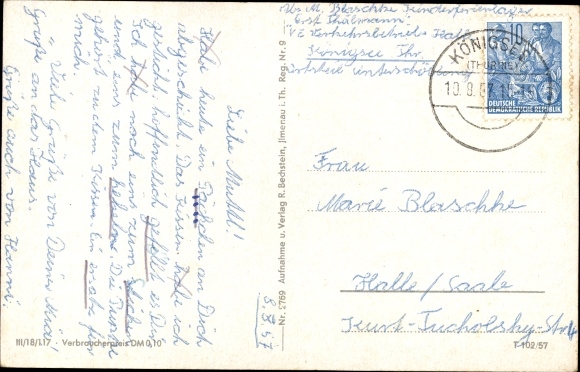 Abs. M. Blaschke Kinderferienlager
Ernst Thälmann
VE Verkehrsbetrieb Halle
Königsee Thr.
Ortsteil unterschöbling
10
KÖNIGSEE
(THÜRING)
10.8.57
DEUTSCHE
DEMOKRATISCHE REPUBLIK
Liebe Mutti!
Habe heute ein Päckchen an Dich
abgeschickt. Das Kissen habe ich
gestickt, hoffentlich gefällt es Dir.
Ich habe noch eins zum Sticken
und eins zum Bekleben. Die
gehört zu dem Kissen. Ein für
mich.
Viele Grüße von Deiner
Grüße an das Haus.
Grüße auch von Hanni.
8.8.57
Frau
Marie Blaschke
Halle/Saale
Kurt-Tucholsky-Str 4
Nr. 2769 Aufnahme u. Verlag R. Bechstein, Ilmenau i. Th. Reg. Nr. 9
III/18/117 Verbraucherpreis DM 0,10
T-102/57